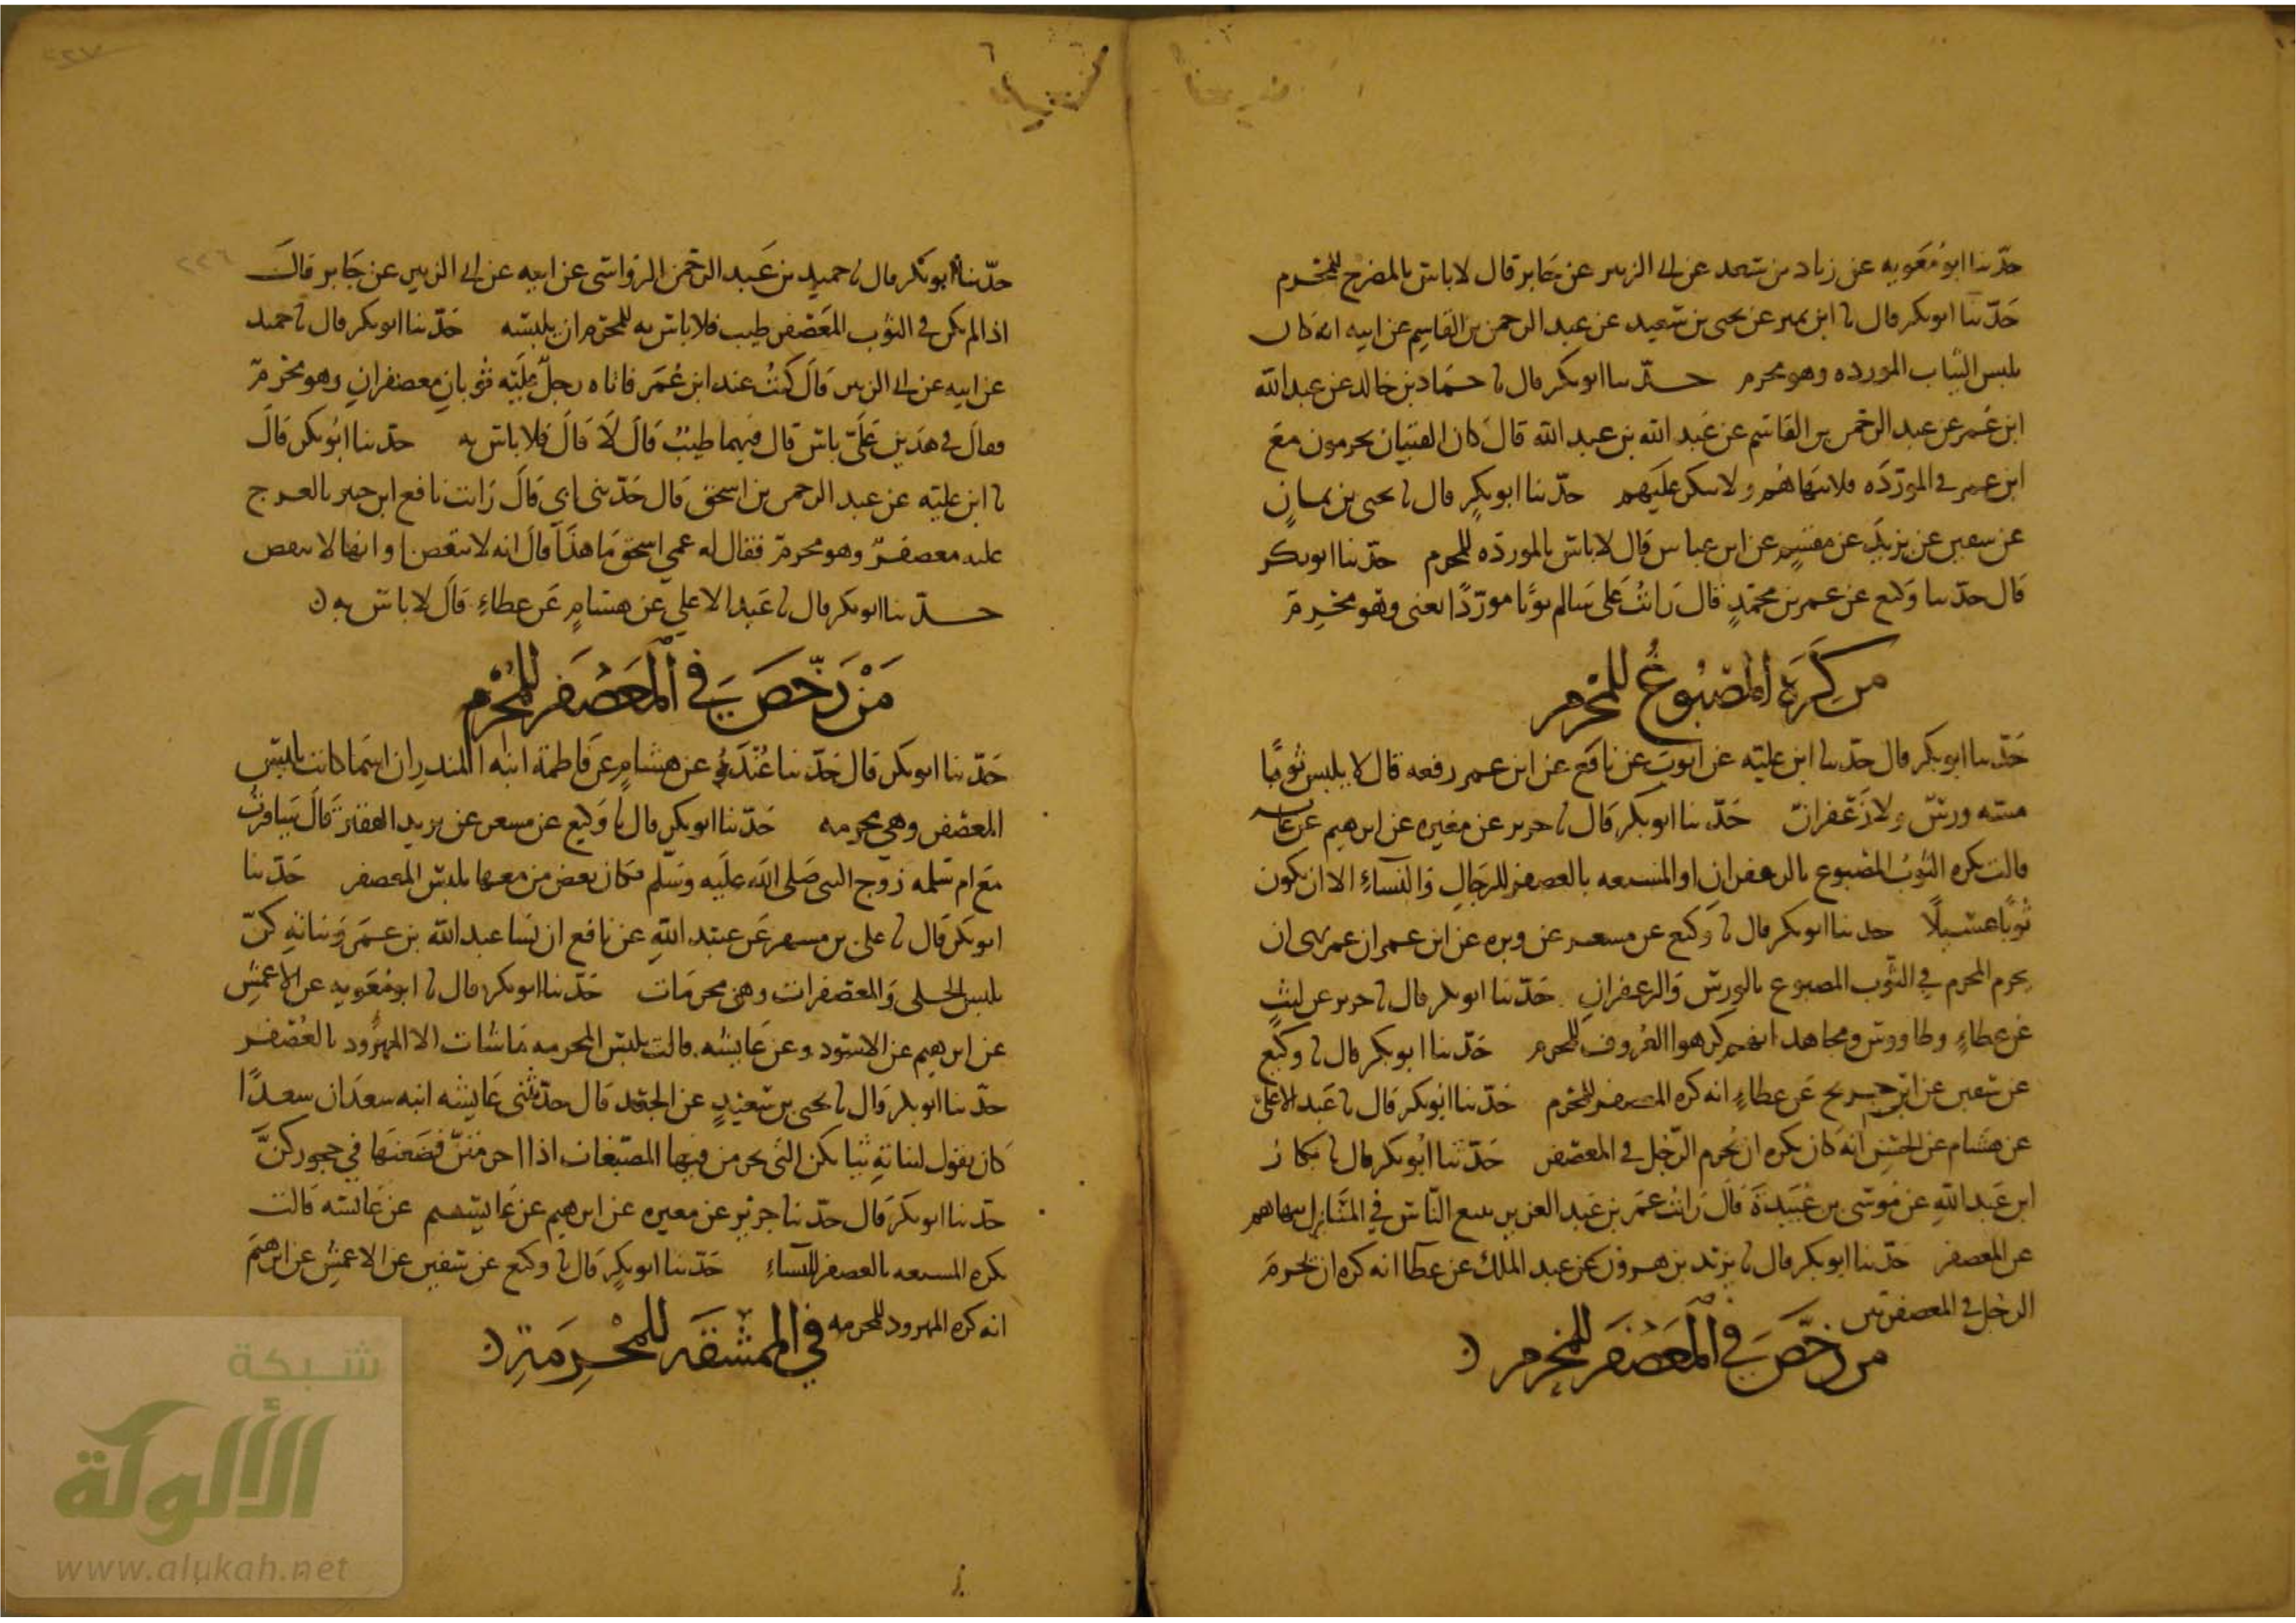 حدّثنا ابو مُعَويه عن زياد بن سعد عن ابى الزبير عن جَابر قال لاباس بالمضرج للمُحْرم
حَدّثنا ابوبكر قال نا ابن نمير عن يحيى بن سَعيد عن عبد الرحمن بن القَاسِم عن ابيه انه كان
يلبس الثياب المورده وهو محرم حدّثنا ابوبكر قال نا حمّاد بن خالد عن عبد الله
ابن عُمر عن عبد الرحمن بن القاسم عن عَبد الله بن عبد الله قال كان الفتيان يحرمون مَع
ابن عمر في المورّدَه فلا ينهَاهُم ولا ينكر علَيهم حدّثنا ابوبكرٍ قال نا يحيى بن يمانٍ
عن سفين عن يزيد عن مقسمٍ عن ابن عباس قال لاباس بالمورده للمحرم حدّثنا ابوبكر
قَال حدّثنا وَكيع عن عمر بن محمّدٍ قال رَايتُ عَلى سَالم ثوبًا مورّدًا يعنى وَهو مُحْرِم
من كَرِهَ المصْبُوغُ للمُحْرم
حَدّثنا ابوبكر قال حدّثنا ابن عليّه عن ايوبَ عن نافع عن ابن عمر رفعه قال لا يلبس ثوبًا
مسّه ورسٌ ولا زَعْفران حَدّثنا ابوبكر قَال نا جرير عن مغيره عن ابرهيم عن عايشه
قالت يكره الثوبُ المصْبوغ بالزعفران او المشبعه بالعصفر للرجَالِ وَالنسَاءِ الا ان يكون
ثوبًا غسيلًا حدثنا ابوبكر قال نا وكيع عن مسعر عن وبره عن ابن عمر ان عمر نهى ان
يحرم المحرم في الثّوب المصبوغ بالورس وَالزعفرانِ حَدّثنا ابوبكر قال نا جرير عن ليثٍ
عن عطاءٍ وطاووسٍ ومجاهد انهم كرهوا العُروف للمُحرم حَدّثنا ابوبكر قال نا وكيع
عن سفين عن ابن جريج عَن عطاءٍ انه كره المعصفر للمحْرم حَدّثنا ابُوبكر قال نا عَبد الاعلى
عن هشام عن الحسنِ انّه كان يكره ان يُحرم الرّجل في المعصْفر حَدّثنا ابُوبكر قال نا بكار
ابن عَبد اللهِ عن مُوسَى بن عُبَيدةَ قَالَ رَايتُ عمَر بن عَبد العزيز يدع النّاس في المنَازل ينهاهم
عن المعصفر حَدّثنا ابوبكر قال نا يزيد بن هرون عن عبد الملك عن عطا انه كره ان يُحرمَ
الرجل في المعصفرتين
من رخّصَ في المعَصْفَر للمُحْرم
حدّثنا ابوبكر قال نا حميد بن عَبد الرحمن الرواسى عن ابيه عن ابى الزبير عن جَابر قالَ
اذا لم يكن في الثوب المعَصْفر طيب فلا باس به للمحرم ان يلبسَه حَدّثنا ابوبكر قال نا حميد
عن ابيه عن ابى الزبير قَالَ كنتُ عند ابن عُمَر فاتاه رجلٌ عَلَيه ثوبانِ معصفرانِ وهو محْرِمٌ
فقال في هذين عَلَيّ باس قال فيهما طيبٌ قَالَ لَا قَالَ فلا باس به حدّثنا ابُوبكر قَالَ
نا ابن عليّه عن عبد الرحمن بن اسحق قال حَدّثنى ابى قَالَ رَايت نافع ابن جبير بالعرج
عليه معصفرٌ وهو محرمٌ فقال له عمى اسحق مَا هذَا قالَ انه لا ينفض وانها لا تنفض
حدّثنا ابوبكر قال نا عَبد الاعلى عن هشامٍ عَن عطاءِ قَالَ لا باس به
مَنْ رَخَّصَ في المعَصْفَر للمُحْرم
حَدّثنا ابوبكر قال حَدّثنا غُنْدَرٌ عن هشامٍ عَن فَاطمة ابنه المنذرِ ان اسمَا كانت تلبس
المعصْفر وهي محرمه حَدّثنا ابوبكرٍ قال نا وَكيع عن مسعر عن يزيد الفقير قَالَ سَافرتُ
مَع ام سَلمه زوج النبى صَلى الله عَليه وَسَلم فكان بعض من معها يلبس المعصفر حَدّثنا
ابوبكر قَال نا على بن مسهر عَن عبَيد اللهِ عن نافع ان نسَا عبد الله بن عمَر وَبناتِه كنّ
يلبسن الحلى وَالمعصفرات وهن محرمَات حَدّثنا ابوبكر قال نا ابو مُعَويه عن الاعْمشِ
عن ابرهيم عن الاسود وعن عَايشه قالت تلبس المحرمه مَا شاءت الا المهرُود بالعُصْفر
حدّثنا ابوبكر قال نا يحيى بن سَعيدٍ عن الجعْد قَال حدّثتنى عَايشه ابنه سعد ان سعدًا
كان يقول لبناتهِ ثيابكن التي تحرمن فيها المصبّغات اذا احرمتنّ فضعنَها في حجوركنَّ
حدّثنا ابوبكرَ قال حدّثنا جريرٌ عن مغيره عن ابرهيم عن عَايشه قَالت
يكره المشبعه بالعصفر للنساءِ حَدّثنا ابوبكرٍ قال نا وكيع عن سفين عن الاعمش عن ابرهيمَ
انه كره المهرود للمحرمه
في الممشقه للمُحْرِمَةِ
شبكة
الألوكة
www.alukah.net